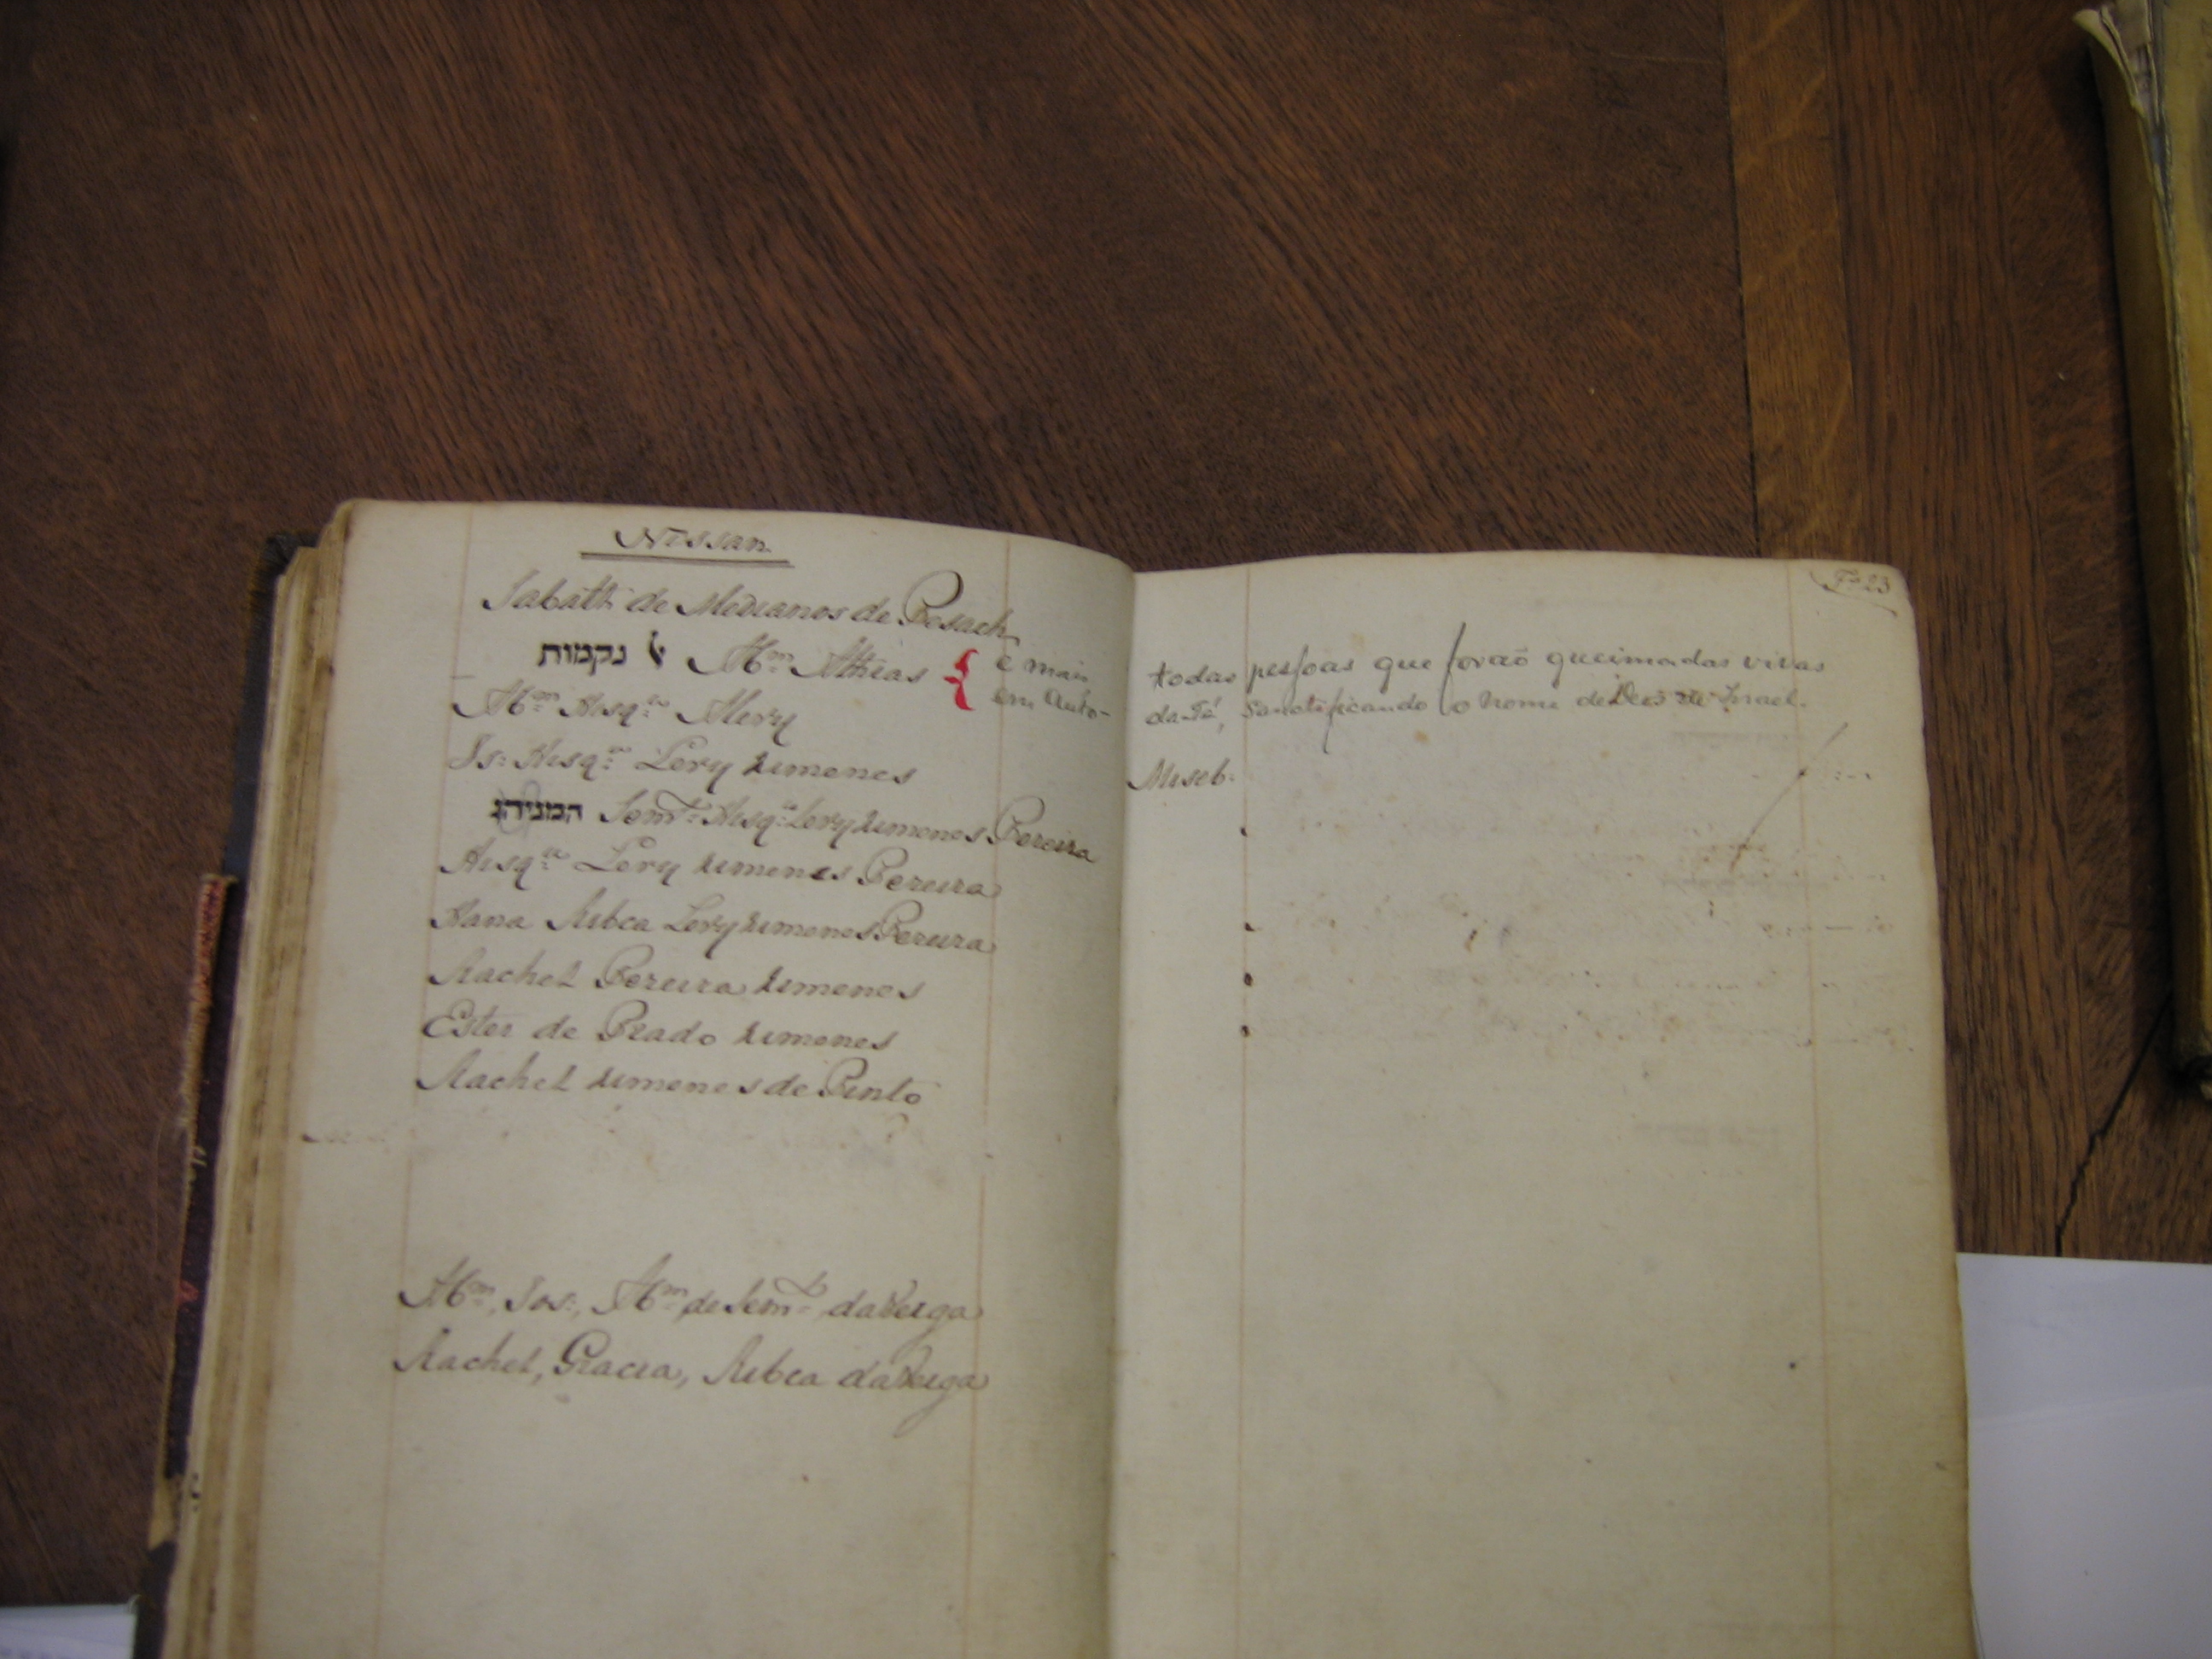 Nissan
Sabath de Medianos de Pesach
נקמות Ab.m Athias { e mais
em Auto-
Ab.m Hisq.a Alevy
Is: Hisq.a Levy Ximenes
המניהג Sem.l Hisq.a Levy Ximenes Pereira
Hisq.a Levy Ximenes Pereira
Hana Ribca Levy Ximenes Pereira
Rachel Pereira Ximenes
Ester de Prado Ximenes
Rachel Ximenes de Pinto
Ab.m, Jos:, Ab.m de Sem.l da Veiga
Rachel, Gracia, Ribca da Veiga
Fo 23
todas pessoas que forão queimadas vivas
da Fé, Sanctificando o Nome de Deos de Israel.
Miseb.